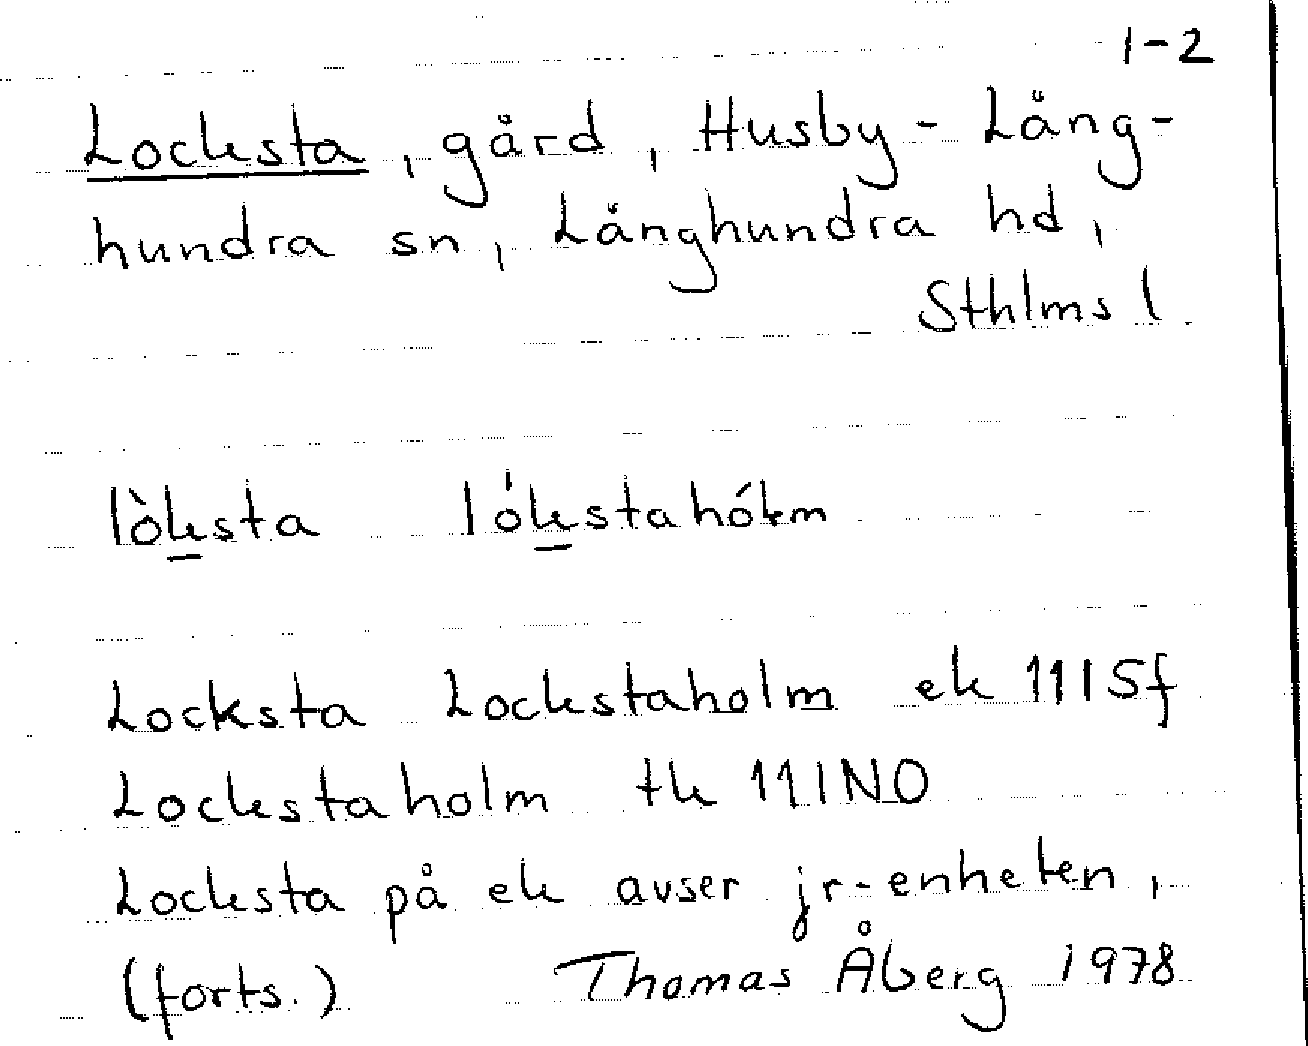 1-2
Locksta, gård, Husby-Lång-
hundra sn, Långhundra hd,
Sthlms l.
lòksta lókstahólm
Locksta Lockstaholm ek 11I5f
Lockstaholm tk 11INO
Locksta på ek avser jr-enheten,
(forts.) Thomas Åberg 1978